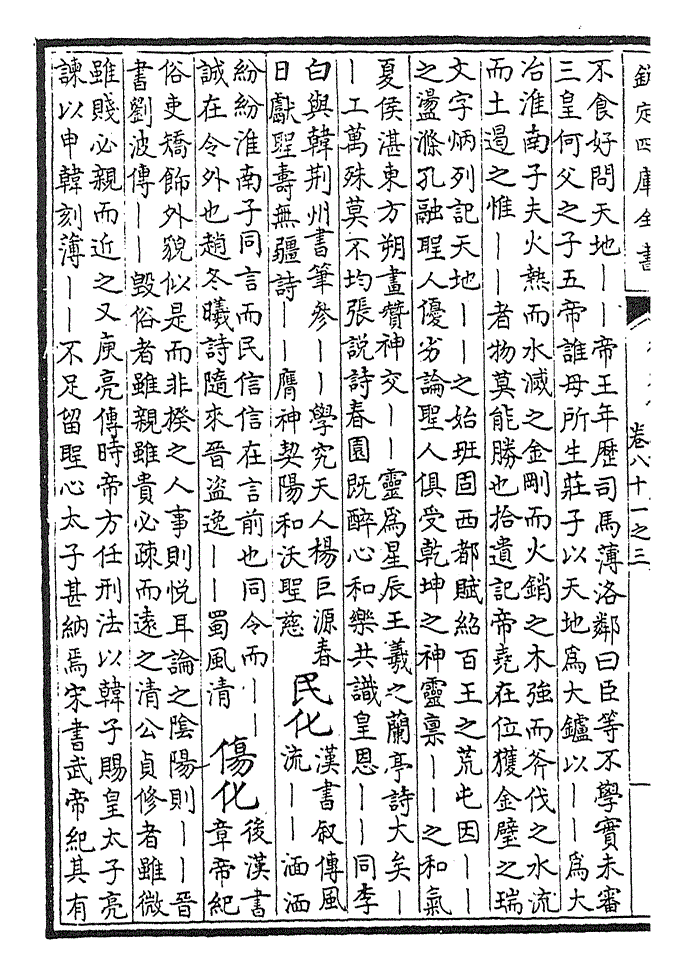 欽定四庫全書
卷八十一之三
不食好問天地丨丨帝王年歷司馬薄洛鄰曰臣等不學實未審
三皇何父之子五帝誰母所生莊子以天地為大鑪以丨丨為大
冶淮南子夫火熱而水滅之金剛而火銷之木強而斧伐之水流
而土遏之惟丨丨者物莫能勝也拾遺記帝堯在位獲金璧之瑞
文字炳列記天地丨丨之始班固西都賦紹百王之荒屯因丨丨
之盪滌孔融聖人優劣論聖人俱受乾坤之神靈稟丨丨之和氣
夏侯湛東方朔畫贊神交丨丨靈為星辰王羲之蘭亭詩大矣丨
丨工萬殊莫不均張説詩春園既醉心和樂共識皇恩丨丨同李
白與韓荆州書筆參丨丨學究天人楊巨源春
日獻聖壽無疆詩丨丨膺神契陽和沃聖慈
民化
漢書敘傳風
流丨丨湎湎
紛紛淮南子同言而民信信在言前也同令而丨丨
誠在令外也趙冬曦詩隨來晉盜逸丨丨蜀風清
傷化
後漢書
章帝紀
俗吏矯飾外貌似是而非揆之人事則悦耳論之陰陽則丨丨晉
書劉波傳丨丨毀俗者雖親雖貴必疎而遠之清公貞修者雖微
雖賤必親而近之又庾亮傳時帝方任刑法以韓子賜皇太子亮
諫以申韓刻薄丨丨不足留聖心太子甚納焉宋書武帝紀其有